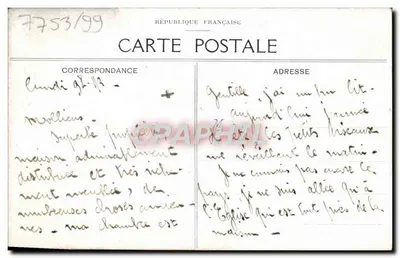 7753/99
RÉPUBLIQUE FRANÇAISE
CARTE POSTALE
CORRESPONDANCE
ADRESSE
Lundi
Molliens.
Superbe
maison admirablement
distribuée et très riche-
ment meublée, de
nombreuses choses ancien-
nes - ma chambre est
gentille, j'ai un peu lit.
aujourd'hui
les petits oiseaux
me réveillent le matin.
Je ne connais pas encore le
pays. je ne suis allée qu'à
l'Eglise qui est tout près de la
maison -
CPArama